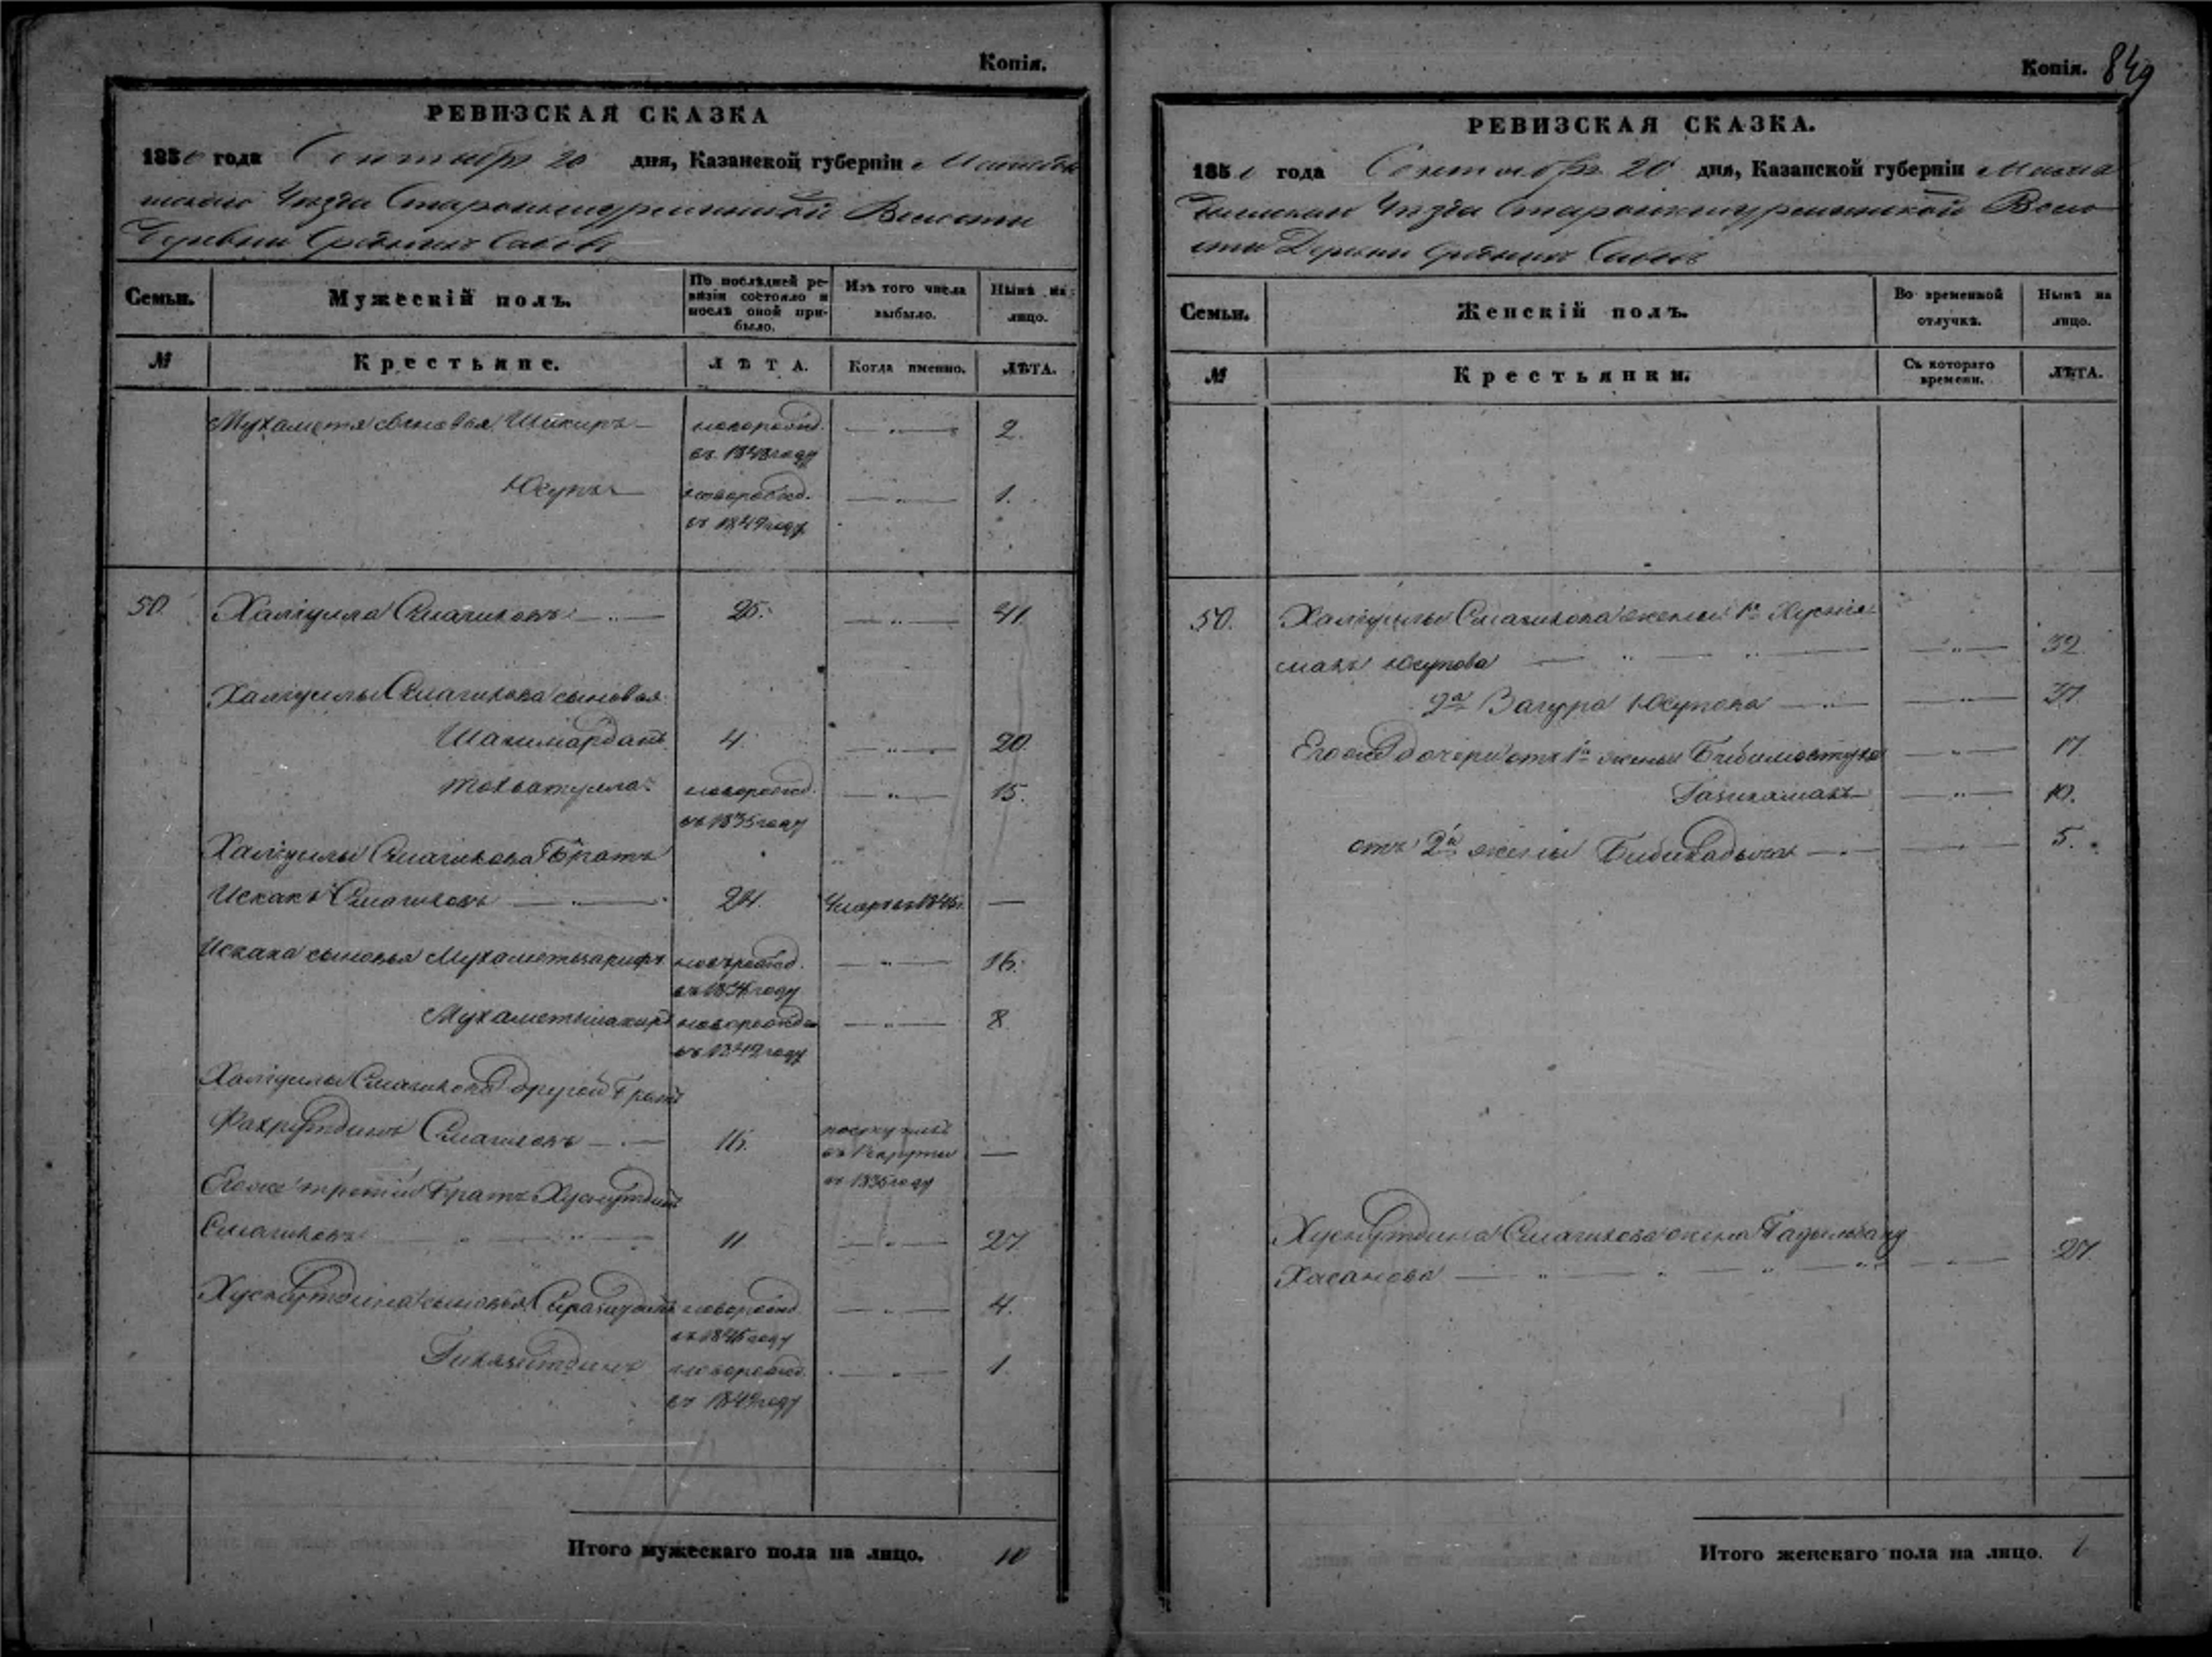 Копія.
РЕВИЗСКАЯ СКАЗКА
1850 года Сентября 20 дня, Казанской губерніи Мамадыш
скаго Уѣзда Волости
Деревни Среднихъ
Семьи. Мужескій полъ. По послѣдней ре-
визіи состояло и
послѣ оной при-
было. Изъ того числа
выбыло. Нынѣ на
лицо.
№ Крестьяне. ЛѢТА. Когда именно. ЛѢТА.
Мухаметя сыновья Шакиръ новорожд. 2.
въ 1848 году
Юсупъ новорожд. 1.
въ 1849 году
50. Халгулла Смагиловъ 25. 41.
Халгуллы Смагилова сыновья
Шагимарданъ 4. 20.
новорожд. 15.
въ 1835 году
Халгуллы Смагилова братъ
Искакъ Смагиловъ 24. Умеръ въ 1845 —
Искака сыновья Мухаметьзарифъ новорожд. 16.
въ 1834 году
Мухаметьшакиръ новорожд. 8.
въ 1842 году
Халгуллы Смагилова другой братъ
Фахрутдинъ Смагиловъ 16. поступилъ
въ рекруты —
въ 1835 году
Его же третій братъ Хуснутдинъ
Смагиловъ 11. 27.
Хуснутдина сыновья Сиразидинъ новорожд. 4.
въ 1846 году
новорожд. 1.
въ 1849 году
Итого мужескаго пола на лицо. 10
Копія. 849
РЕВИЗСКАЯ СКАЗКА.
1850 года Сентября 20 дня, Казанской губерніи Мама
Уѣзда Воло
сти Деревни Среднихъ
Семьи. Женскій полъ. Во временной
отлучкѣ. Нынѣ на
лицо.
№ Крестьянки. Съ котораго
времени. ЛѢТА.
50. Халгуллы Смагилова жены 1я Хусни
Юсупова 39.
2я Загура Юсупова 37.
Его же дочери отъ 1й жены 17.
10.
отъ 2й жены 5.
Хуснутдина Смагилова жена
Хасанова 27.
Итого женскаго пола на лицо. 6